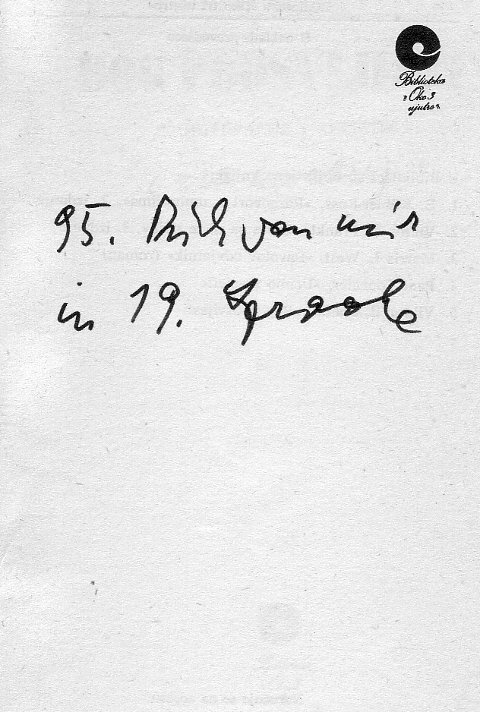 Biblioteka
"Oko 3
ujutro"
95. Buch von mir
in 19. Sprache